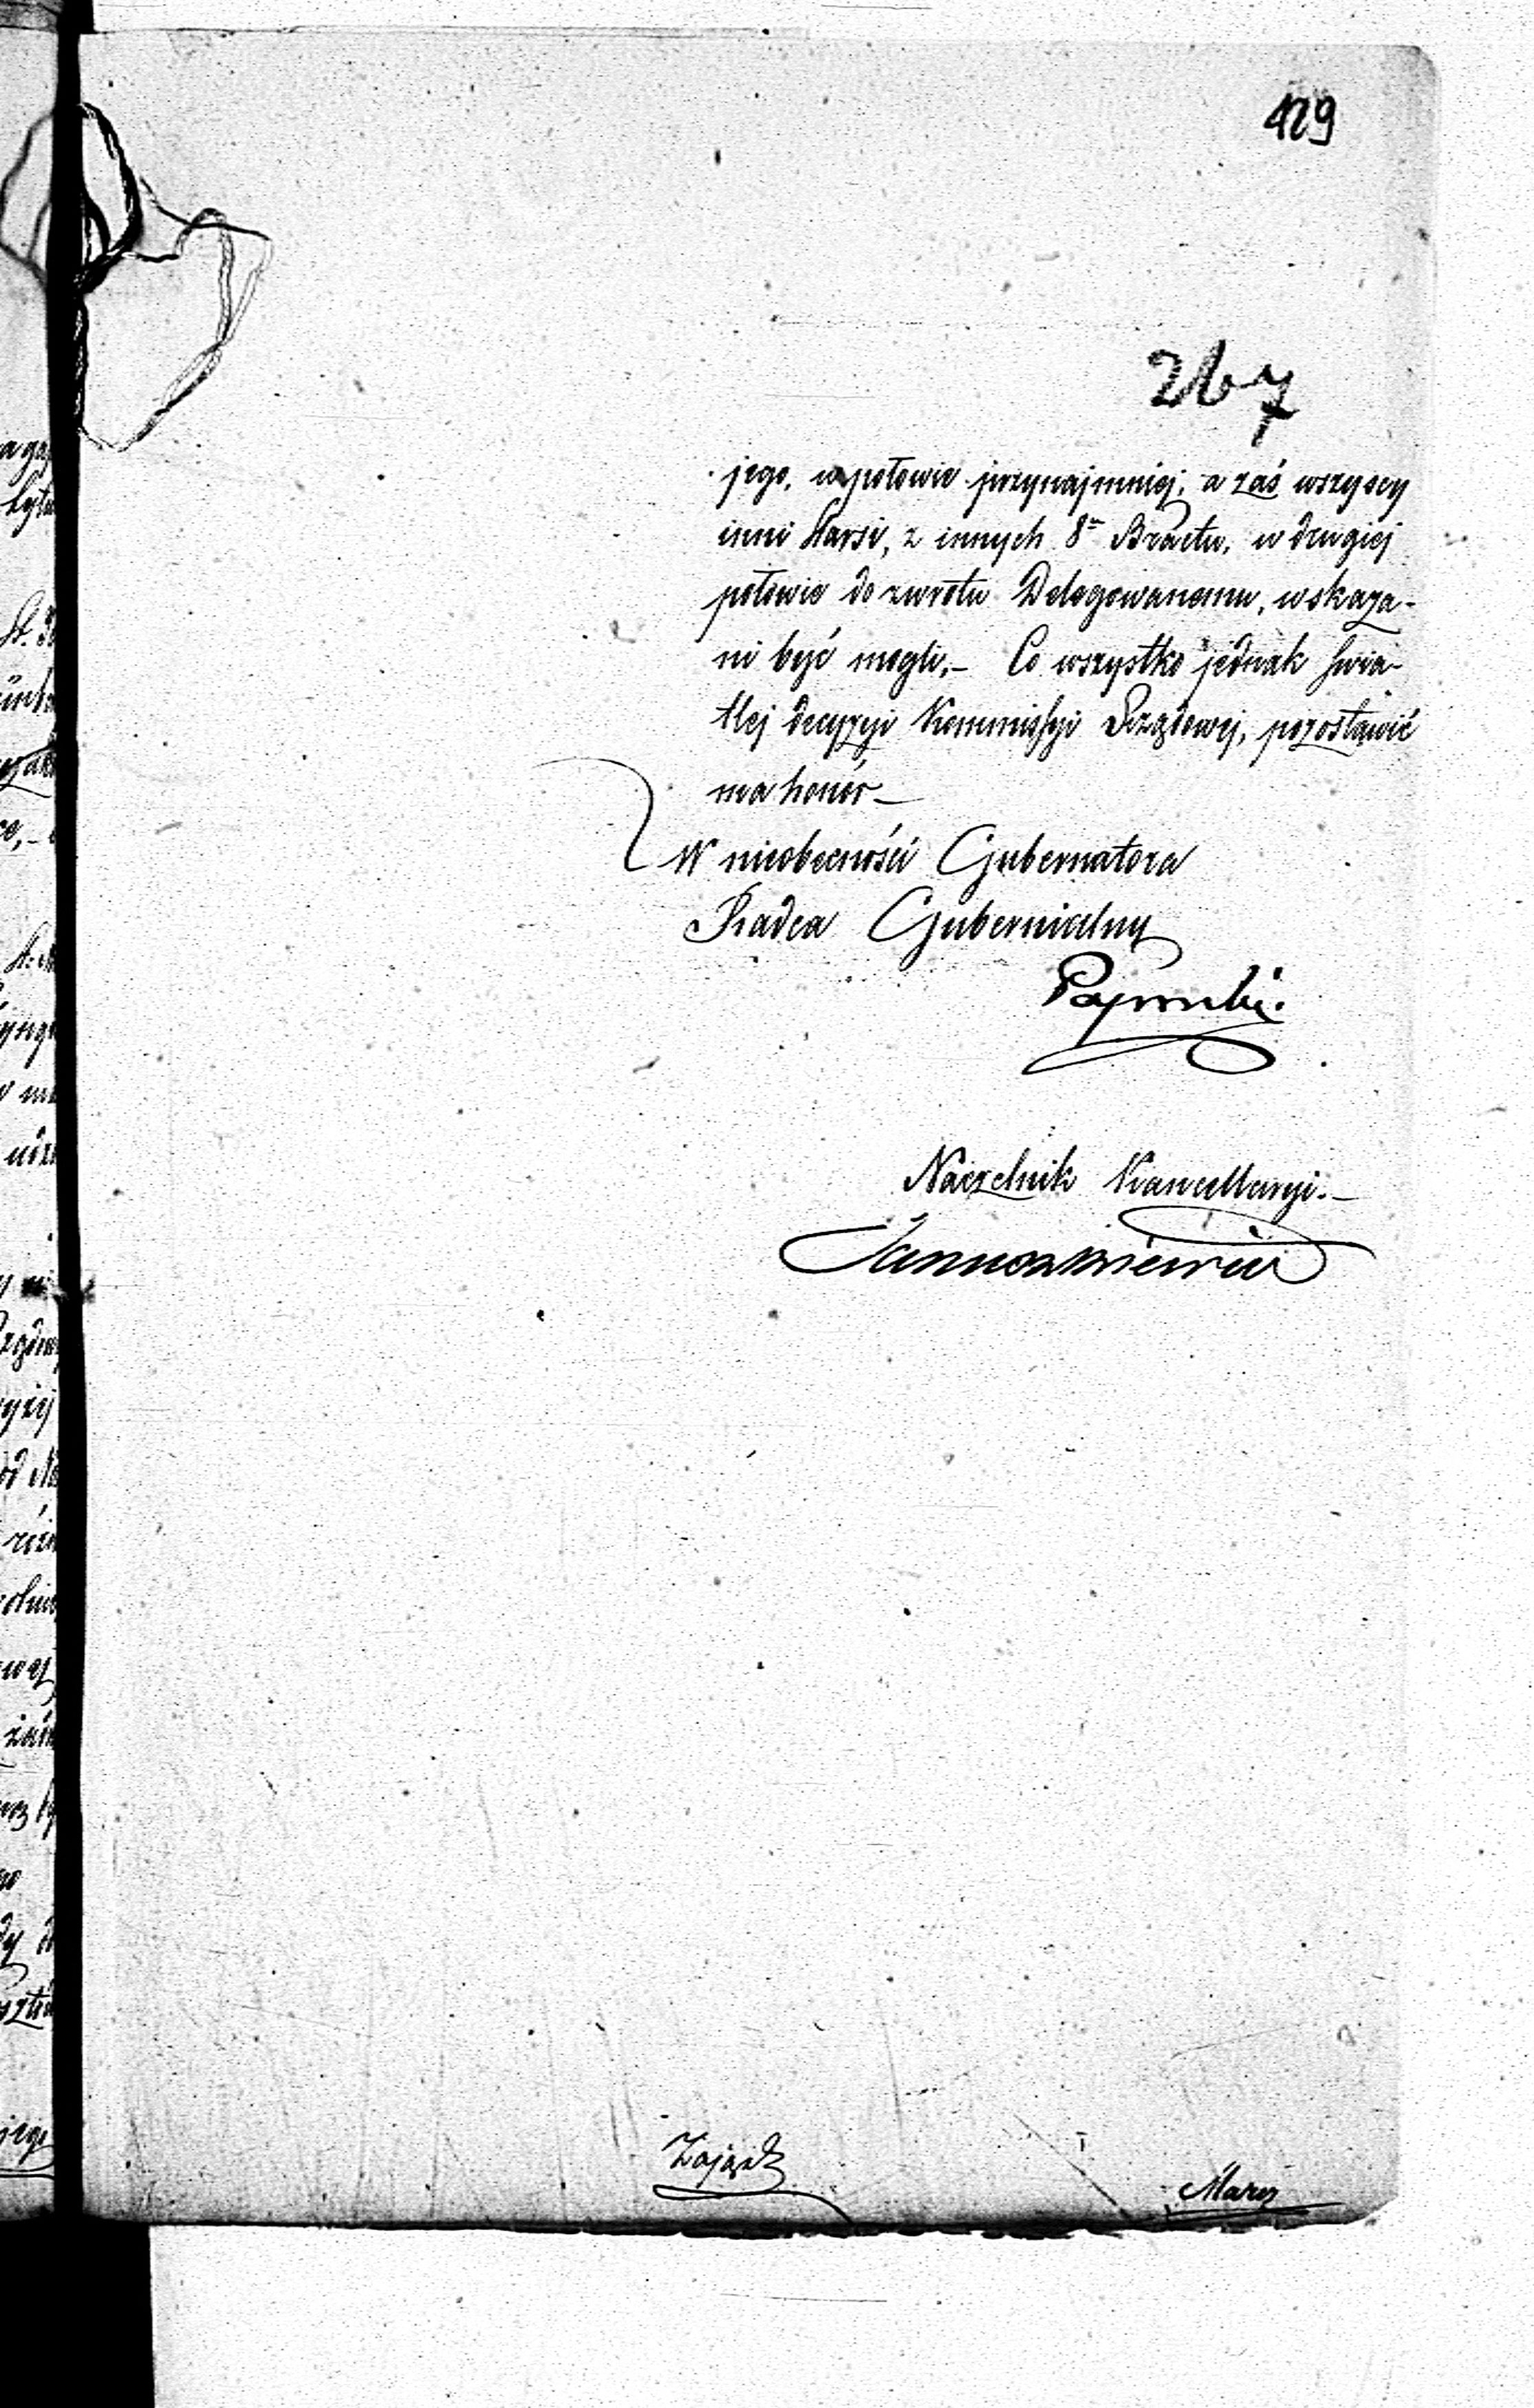 429
267
jego, w połowie przynajmniej, a zaś wszyscy
inni Starsi, z innych 8<sup>u</sup> Bractw, w drugiej
połowie do zwrotu Delegowanemu, wskaza-
ni być mogli.— Co wszystko jednak świa-
tłej decyzyi Kommissyi Rządowej, pozostawić
ma honór—
W nieobecności Gubernatora
Radca Gubernialny
Naczelnik Kancellaryi.—
Januszkiewicz
Zajązd